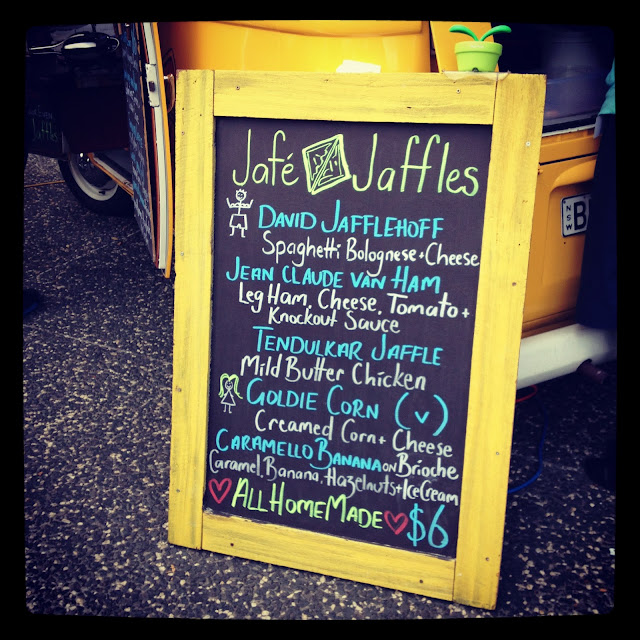 Jafé Jaffles
DAVID JAFFLEHOFF
Spaghetti Bolognese + Cheese
JEAN CLAUDE VAN HAM
Leg Ham, Cheese, Tomato +
Knockout Sauce
TENDULKAR JAFFLE
Mild Butter Chicken
GOLDIE CORN (V)
Creamed Corn + Cheese
CARAMELLO BANANA ON BRIOCHE
Caramel, Banana, Hazelnuts + Ice Cream
ALL HOME MADE $6
NSW B